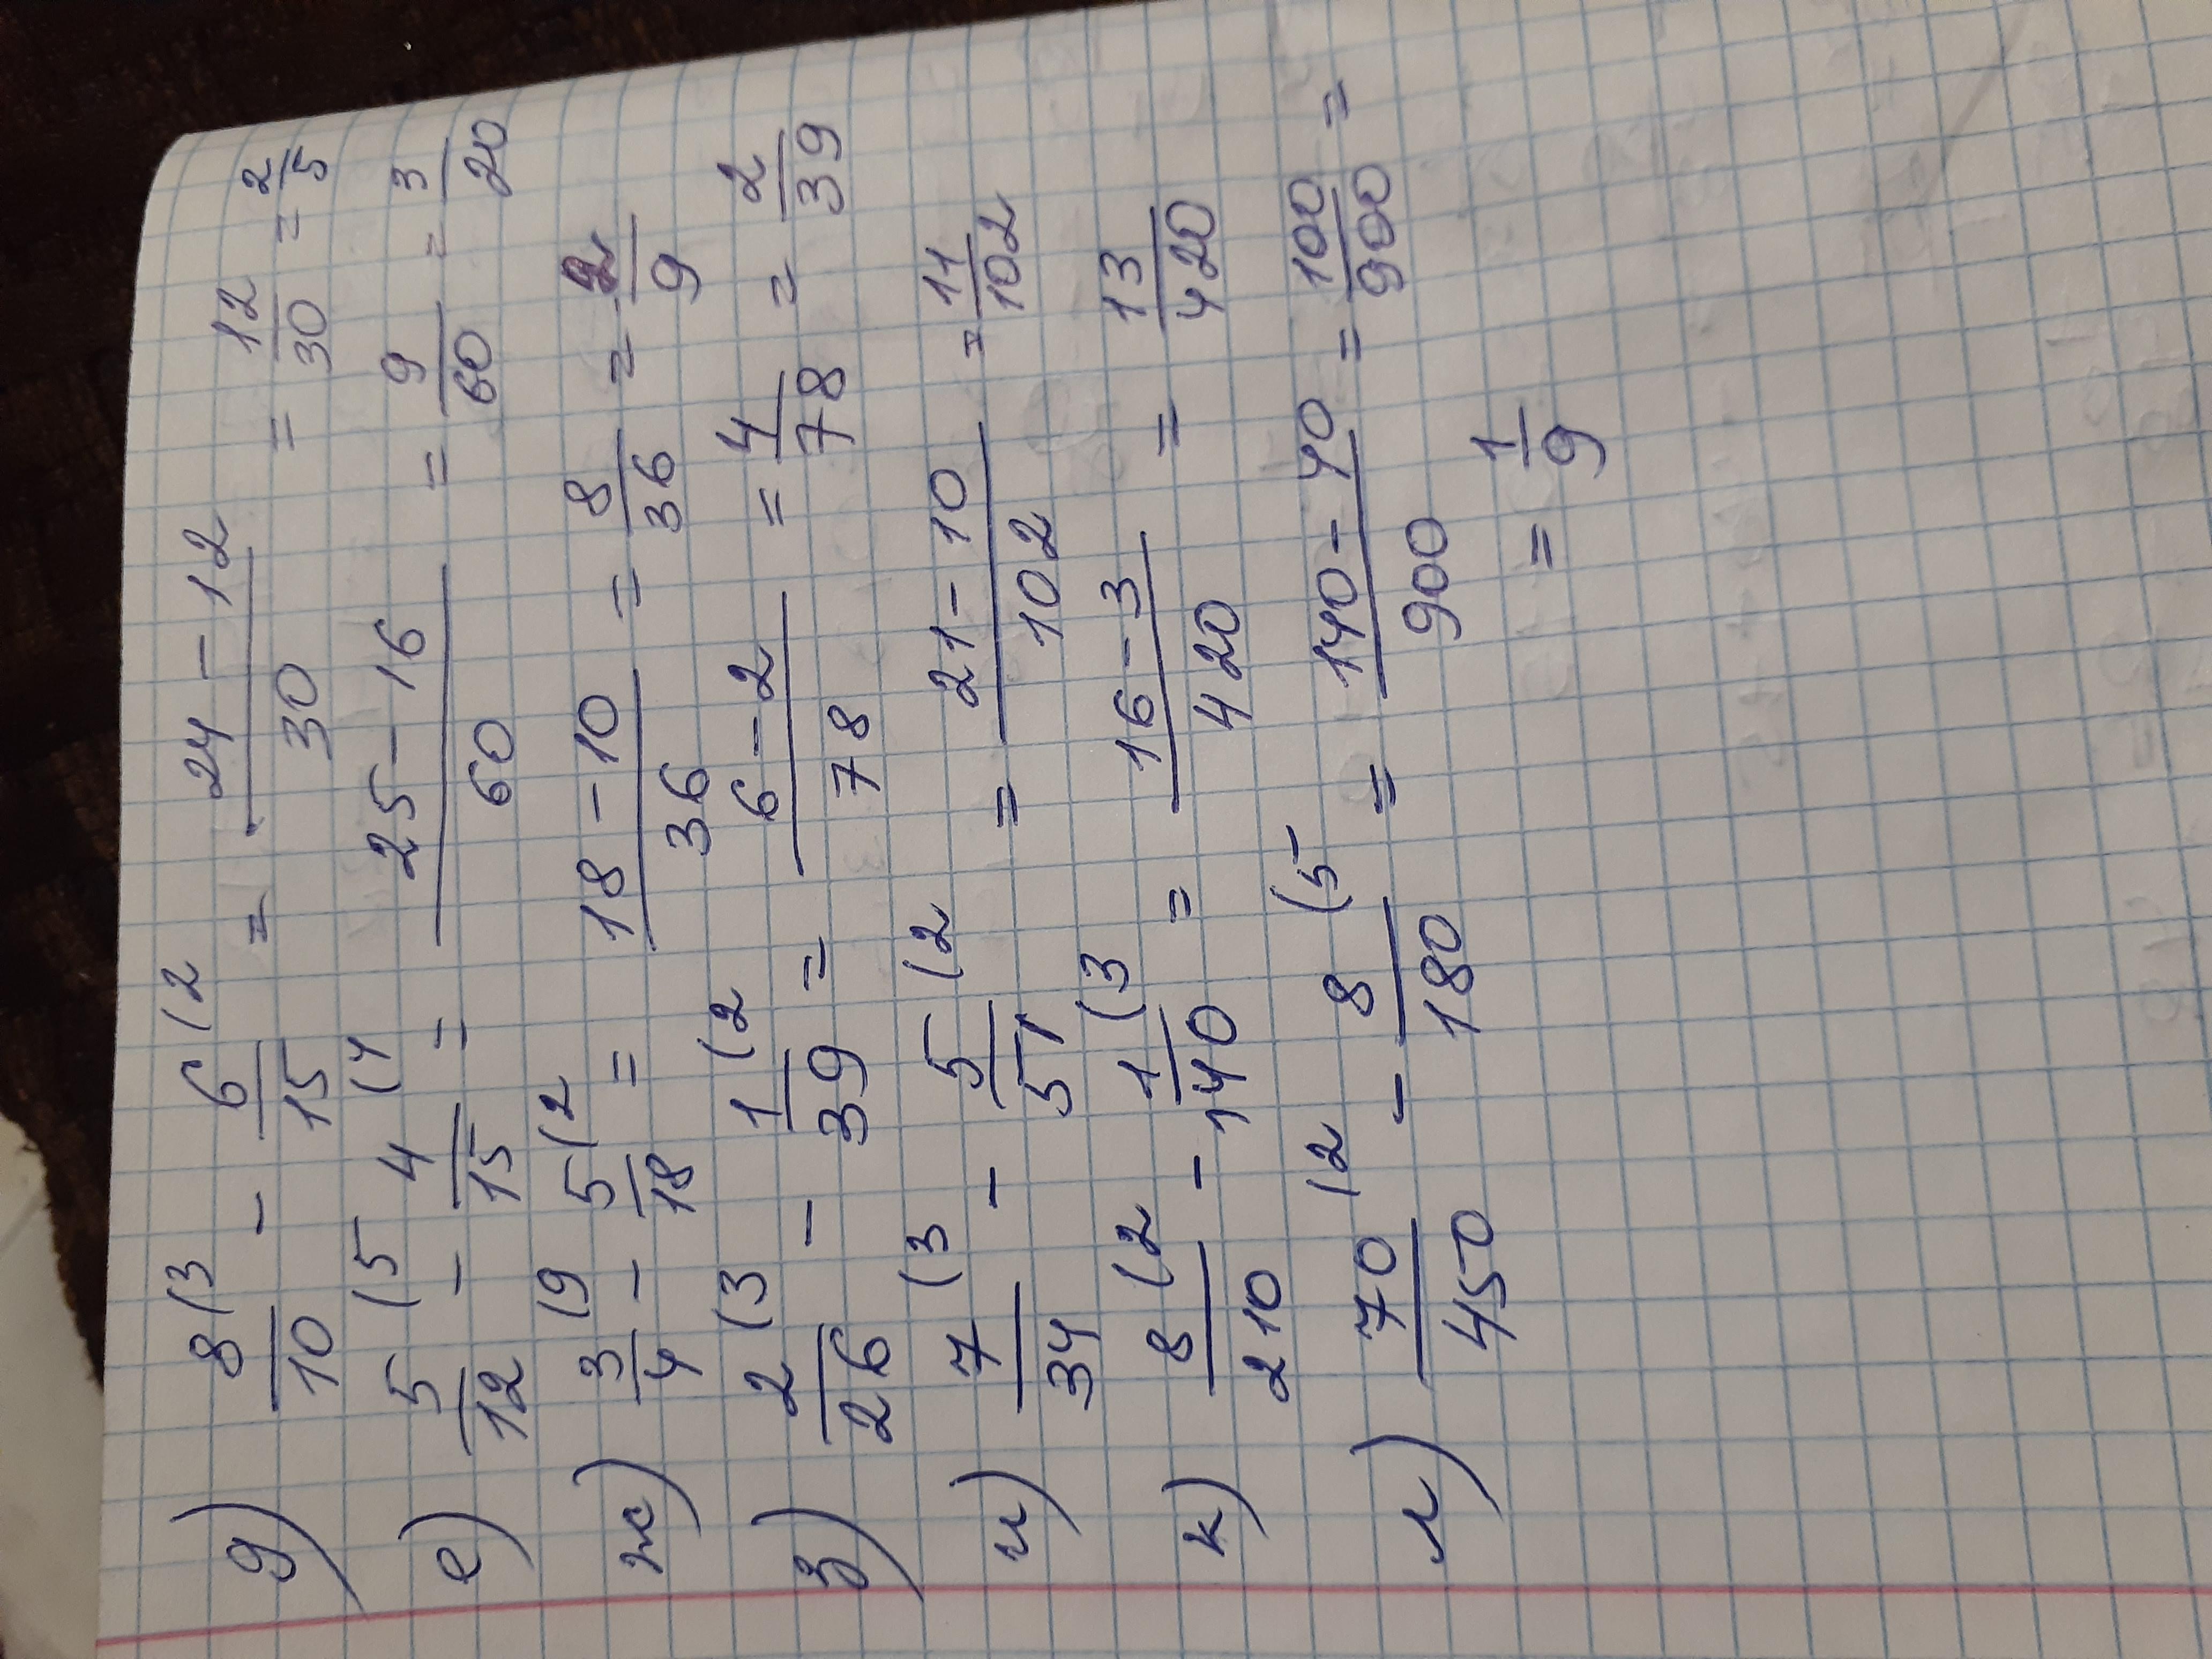 д) 8/10 (3 - 6/15 (2 = (24 - 12)/30 = 12/30 = 2/5
е) 5/12 (5 - 4/15 (4 = (25 - 16)/60 = 9/60 = 3/20
ж) 3/4 (9 - 5/18 (2 = (18 - 10)/36 = 8/36 = 2/9
з) 2/26 (3 - 1/39 (2 = (6 - 2)/78 = 4/78 = 2/39
и) 7/34 (3 - 5/51 (2 = (21 - 10)/102 = 11/102
к) 8/210 (2 - 1/140 (3 = (16 - 3)/420 = 13/420
л) 70/450 (2 - 8/180 (5 = (140 - 40)/900 = 100/900 =
= 1/9